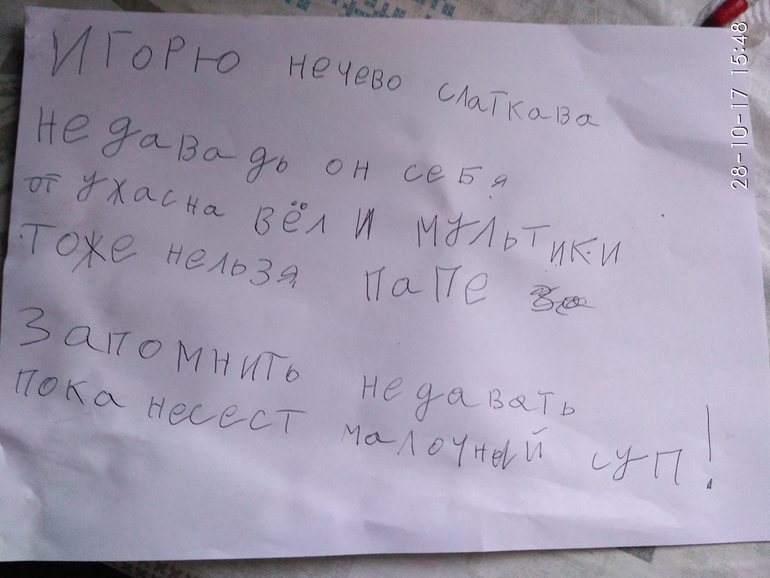 ИГОРЮ нечево слаткава
недавадь он себя
от ухасна вёл и мультики
тоже нельзя папе
Запомнить недавать
пока несест малочный суп!
28-10-17 15:48